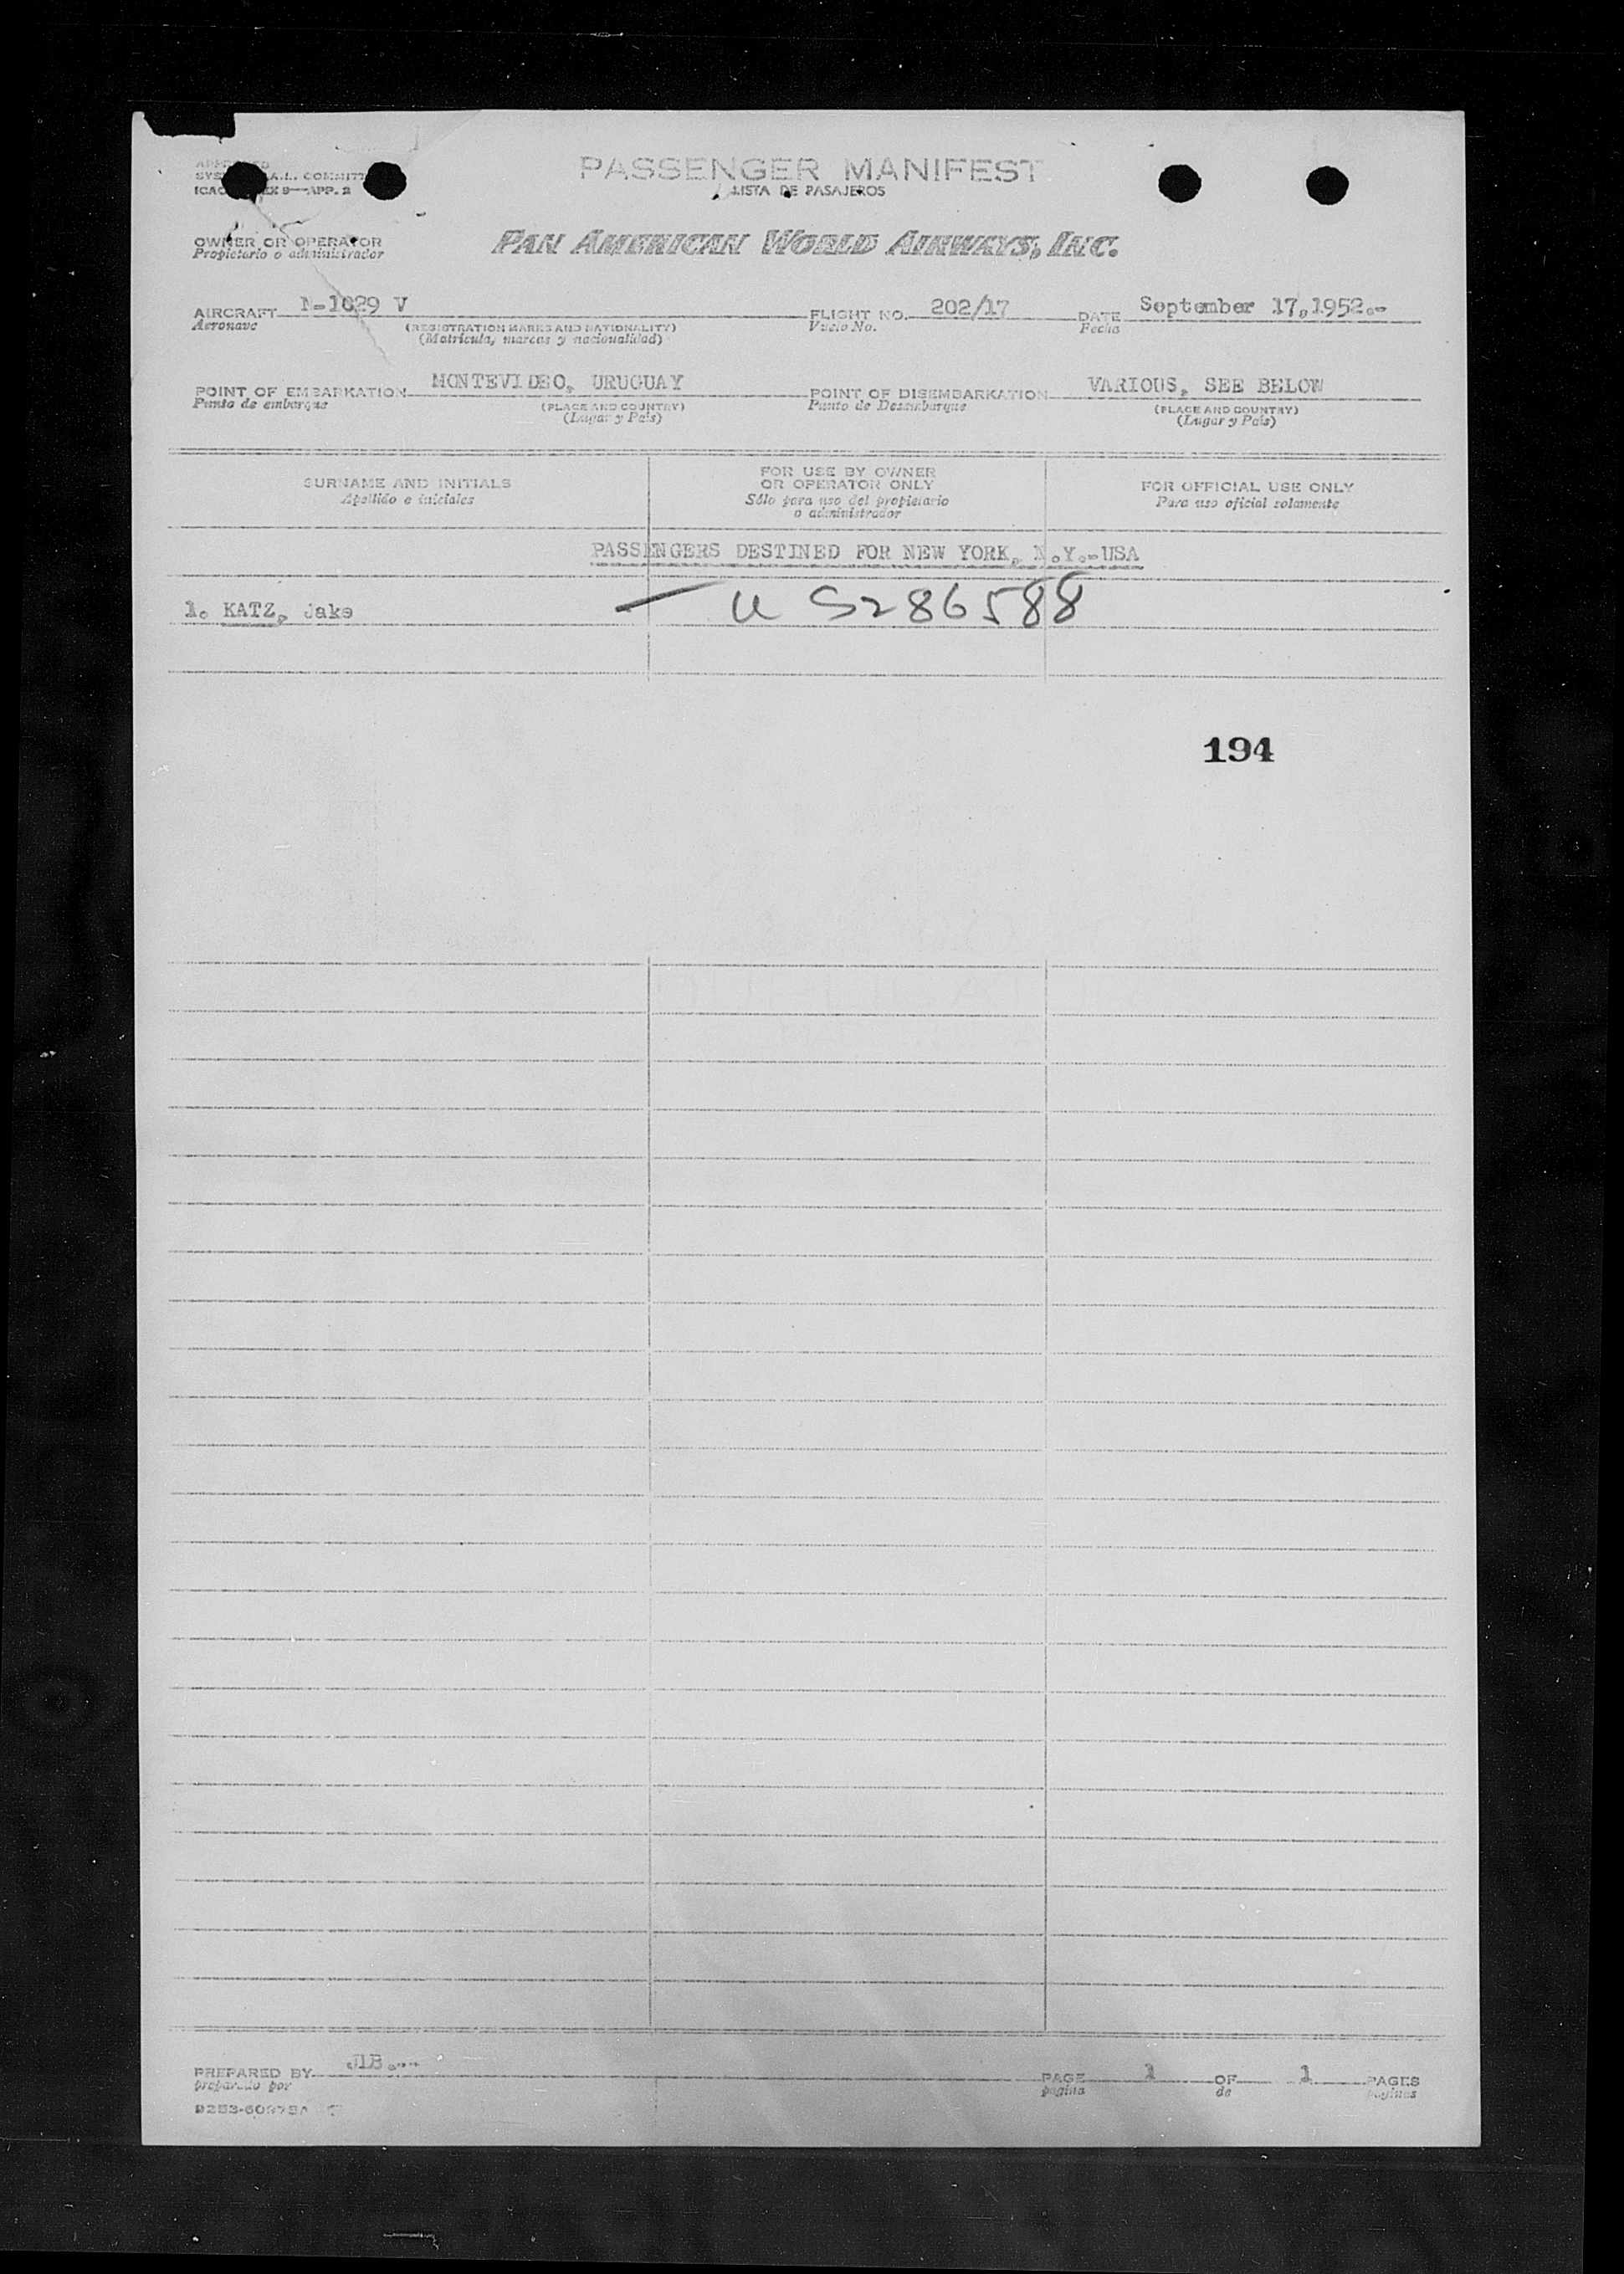 PASSENGER MANIFEST
LISTA DE PASAJEROS
APP. 2
OWNER OR OPERATOR
Propietario o administrador
PAN AMERICAN WORLD AIRWAYS, INC.
AIRCRAFT N-1029 V FLIGHT NO. 202/17 DATE September 17,1952.-
Aeronave (REGISTRATION MARKS AND NATIONALITY) Vuelo No. Fecha
(Matrícula, marcas y nacionalidad)
POINT OF EMBARKATION MONTEVIDEO, URUGUAY POINT OF DISEMBARKATION VARIOUS, SEE BELOW
Punto de embarque (PLACE AND COUNTRY) Punto de Desembarque (PLACE AND COUNTRY)
(Lugar y País) (Lugar y País)
SURNAME AND INITIALS FOR USE BY OWNER OR OPERATOR ONLY FOR OFFICIAL USE ONLY
Apellido e iniciales Sólo para uso del propietario o administrador Para uso oficial solamente
PASSENGERS DESTINED FOR NEW YORK, N.Y.-USA
1. KATZ, Jake U S286588
194
PREPARED BY JLB.-- PAGE 1 OF 1 PAGES
preparado por página de páginas